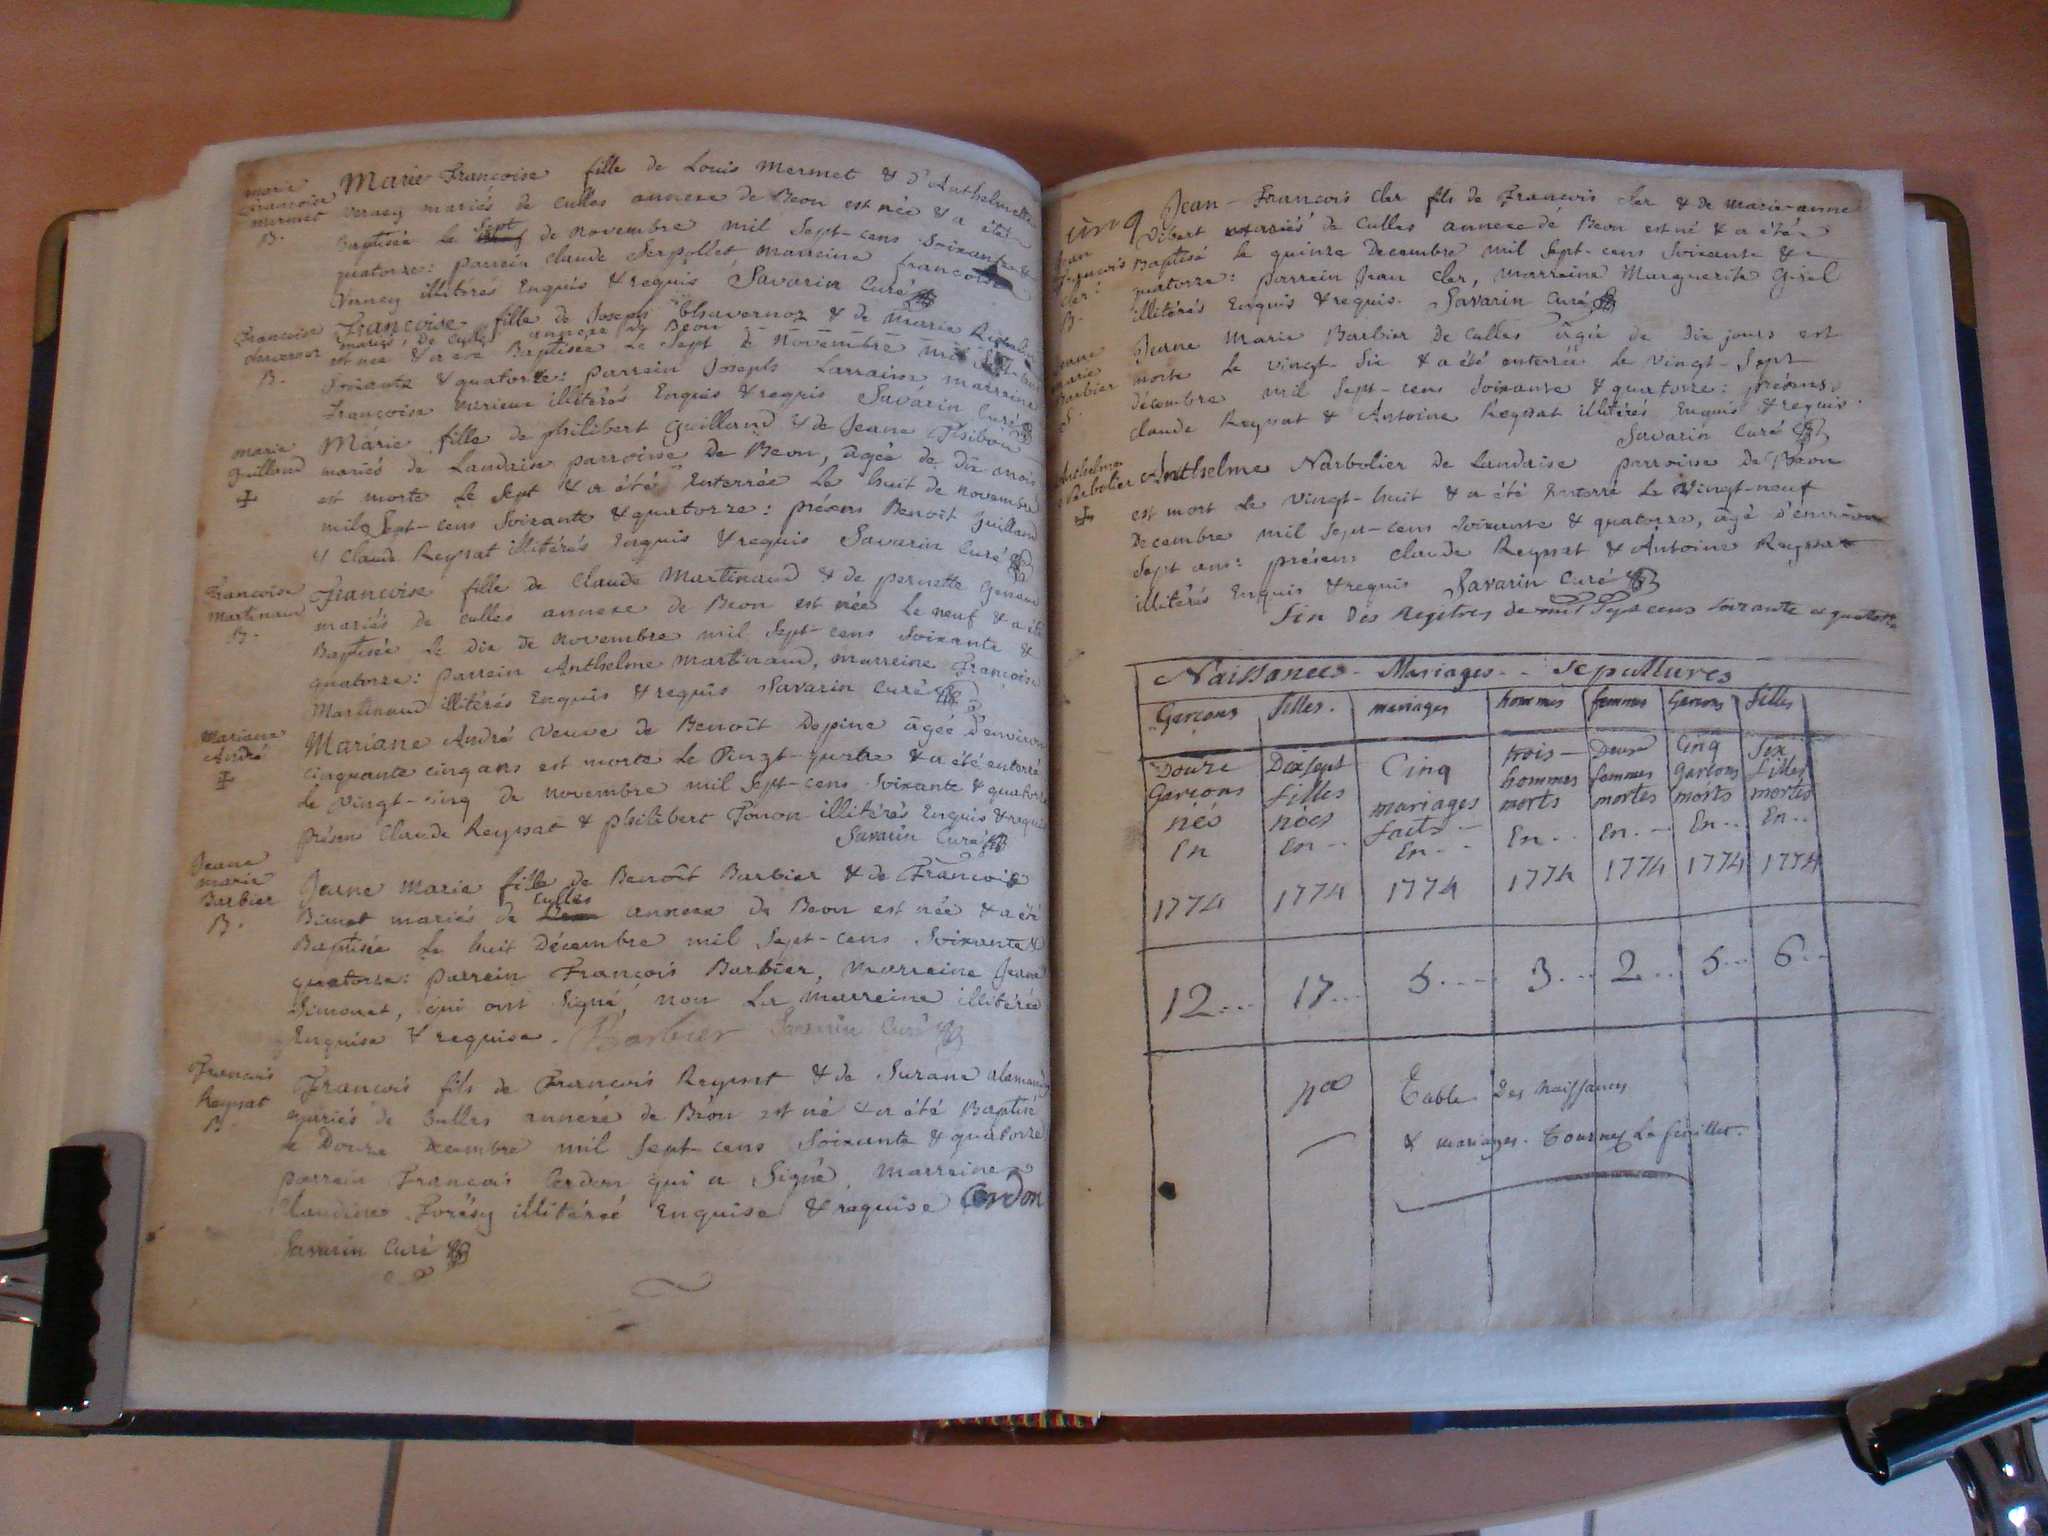 marie
françoise
mermet
B.
Marie Françoise fille de Louis Mermet & d'Anthelmette
Verney mariés de Culles annexe de Beon est née & a été
Baptisée le sept de novembre mil sept-cens soixante &
quatorze: parrein Claude Serpollet, marreine françoise
Verney illitérés Enquis & requis Savarin Curé
Françoise
B.
Françoise fille de Joseph Chavernoz & de Marie
mariés de Culles annexe de Beon
est née & a été Baptisée Le sept de novembre mil sept-cens
soixante & quatorze: parrein Joseph Larraine, marreine
Françoise illitérés Enquis & requis Savarin Curé
marie
guilland
Marie fille de philibert guilland & de Jeane
mariés de Landaise parroise de Beon, âgée de dix mois
est morte Le sept & a été Enterrée Le huit de novembre
mil sept-cens soixante & quatorze: présens Benoît guilland
& Claude Reyssat illitérés Enquis & requis Savarin Curé
Françoise
Martinaud
B.
Françoise fille de Claude Martinaud & de pernette
mariés de Culles annexe de Beon est née Le neuf & a été
Baptisée Le dix de novembre mil sept-cens soixante &
quatorze: parrein Anthelme Martinaud, marreine Françoise
Martinaud illitérés Enquis & requis Savarin Curé
Mariane
André
Mariane André Veuve de Benoît Depine âgée d'environ
cinquante cinq ans est morte Le Vingt-quatre & a été enterré
le Vingt-cinq de novembre mil sept-cens soixante & quatorze
présen Claude Reyssat & philibert Ponon illitérés Enquis & requis
Savarin Curé
Jeane
marie
Barbier
B.
Jeane Marie fille de Benoît Barbier & de Françoise
mariés de Culles annexe de Beon est née & a été
Baptisée Le huit Décembre mil sept-cens soixante &
quatorze: parrein François Barbier, marreine Jeane
Simonet, qui ont signé, non La marreine illitérée
Enquise & requise. Barbier Savarin Curé
François
Reyssat
B.
François fils de François Reyssat & de Suzane alamand
mariés de Culles annexe de Béon est né & a été Baptisé
le Douze Decembre mil sept-cens soixante & quatorze
parrein François Cerdon qui a signé, marreine
Claudine Forésy illitérée Enquise & requise Cerdon
Savarin Curé
cinq
Jean
françois
Cler
B.
Jean-François Cler fils de François Cler & de Marie-anne
Vibert mariés de Culles annexe de Beon est né & a été
Baptisé le quinze Decembre mil sept-cens soixante &
quatorze: parrein Jean Cler, marreine Marguerite
illitérés Enquis & requis. Savarin Curé
Jeane
Marie
Barbier
Jeane Marie Barbier de Culles âgée de dix jours est
morte Le vingt-six & a été enterrée Le Vingt-sept
décembre mil sept-cens soixante & quatorze: présens
Claude Reyssat & Antoine Reyssat illitérés Enquis & requis.
Savarin Curé
Anthelme
Narbolier
Anthelme Narbolier de Landaise parroise de Béon
est mort Le Vingt-huit & a été Enterré Le Vingt-neuf
Decembre mil sept-cens soixante & quatorze, âgé d'environ
sept ans: présens Claude Reyssat & Antoine Reyssat
illitérés Enquis & requis Savarin Curé
Fin Des Regîtres de mil sept cens soixante et quatorze
Naissances - Mariages - - Sepultures
Garçons filles. mariages hommes femmes Garçons filles
Douze Garçons nés En 1774
Dixsept filles nées En . . 1774
Cinq mariages faits . - En . . 1774
trois - hommes morts En . . 1774
Deux femmes mortes En . - 1774
Cinq Garçons morts En . . 1774
Six filles mortes En . . 1774
12... 17... 5.... 3... 2... 5... 6..
Table Des naissances
& mariages. Tournez Le feuillet.